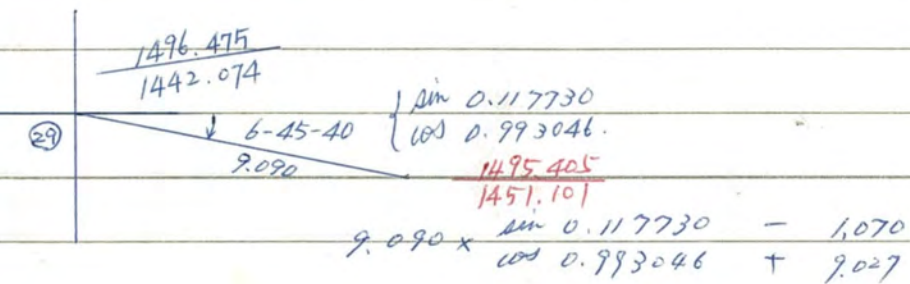 1496.475
1442.074
sin 0.117730
㉙ 6-45-40 cos 0.993046.
9.090
1495.405
1451.101
9.090 × sin 0.117730 - 1,070
cos 0.993046 + 9.027